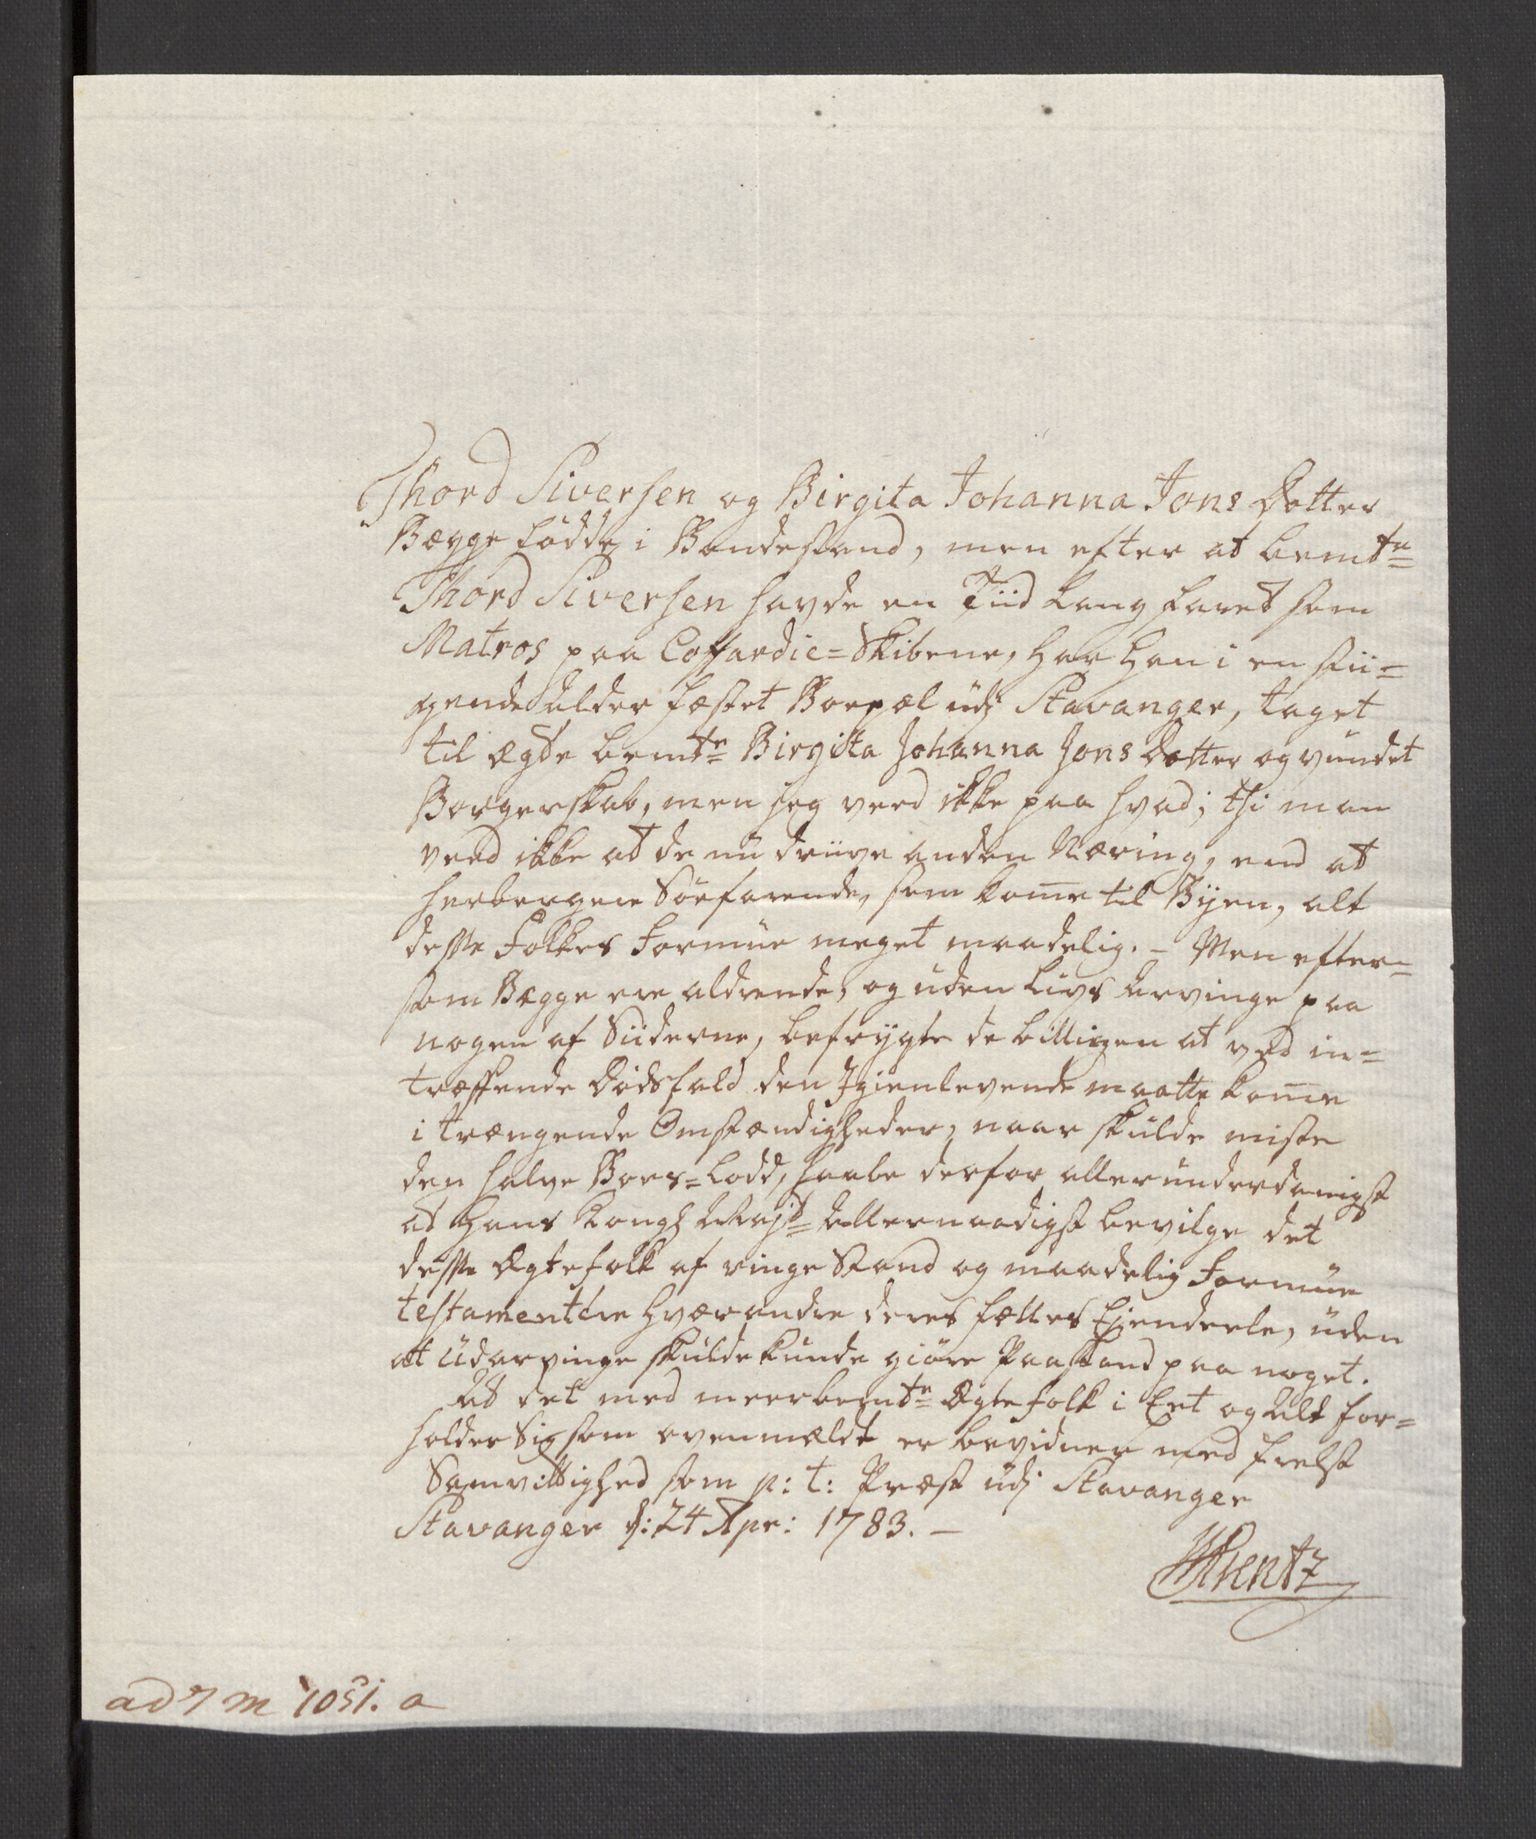 Thord Siversen og Birgita Johanna Jons Dotter
Bægge födde i Bondestand, men efter at bemte
Thord Siversen havde en Tiid lang faret som
Matros paa Coffardie=Skibene, har han i en stii=
gende Alder fæstet Boepæl udj Stavanger, taget
til Ægte bemte Birgita Johanna Jons Dotter og vundet
Borgerskab, men jeg veed ikke paa hvad; thi man
veed ikke at de nu driive anden Næring, end at
herbergere Söefarende, som kome til Byen, alt
desse Folkes Formue meget maadelig. - Men efter=
som Bægge ere aldrende, og uden Livs Arvinge paa
nogen af Siiderne, befrygte de billigen at ved in=
træffende Dödsfald den Igienlevende maatte kome
i trængende Omstændigheder, naar skulde miste
den halve Boes=Lodd, haabe derfor allerunderdanigst
at Hans Kongl Majt Allernaadigst bevilge det
desse Ægtefolk af ringe Stand og maadelig Formue
testamentere hverandre deres fælles Ejendeele, uden
at Udarvinge skulde kunde giöre Paastand paa noget.
At det med meerbemte Ægtefolk i Eet og Alt for=
holder Sig som ovenmældt er bevidner med frelst
Samvittighed som p: t: Præst udj Stavanger
Stavanger d: 24 Apr: 1783. -
HArentz
ad 7 M 1051. a